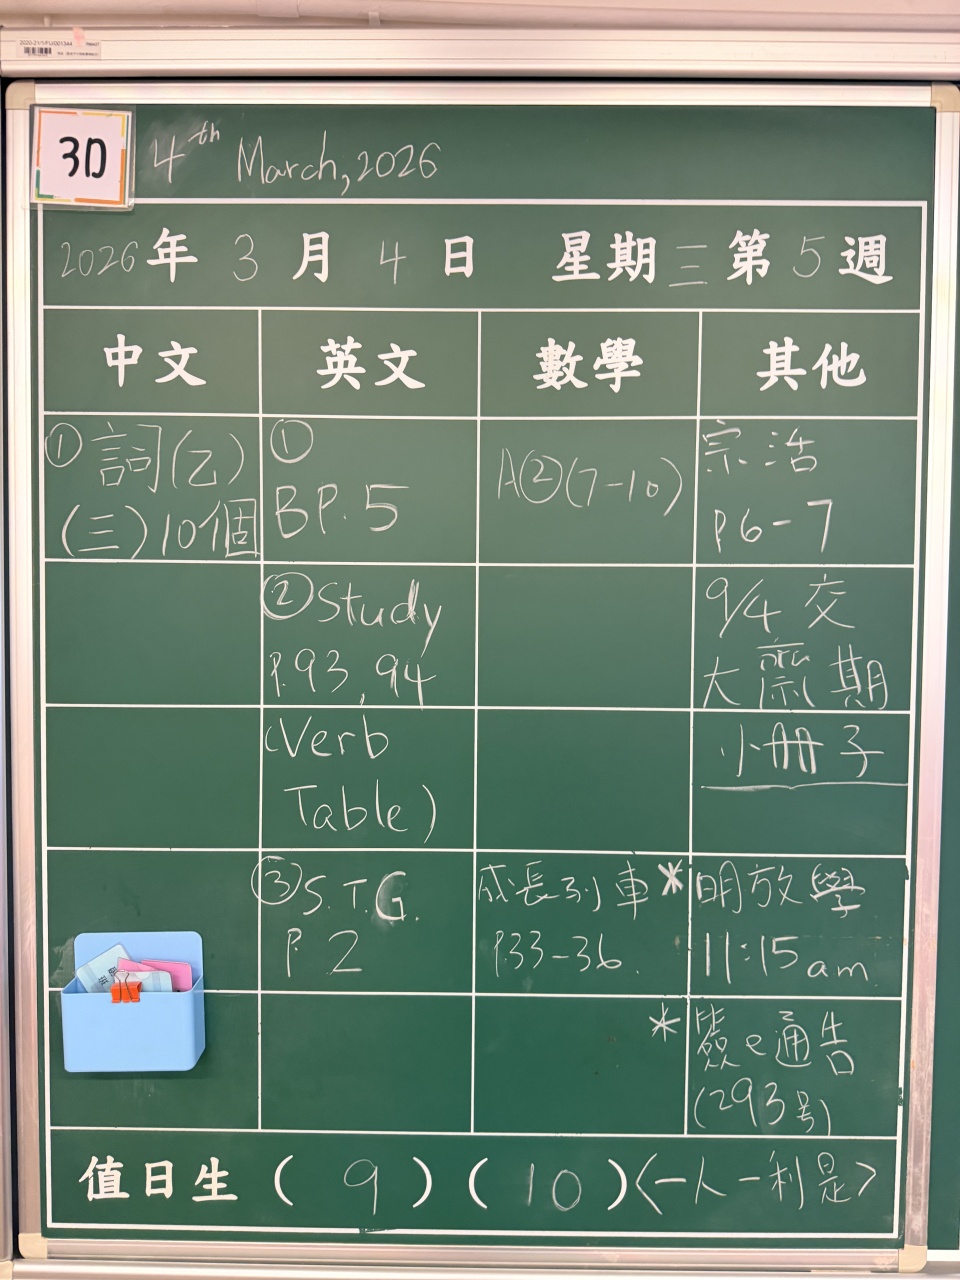 2020-21/1/FU/001344
3D
4th March, 2026
2026年 3 月 4 日 星期三第 5 週
中文 英文 數學 其他
① 詞(乙)
(三)10個
①
BP.5
A②(7-10)
宗.活
P6-7
② Study
P.93, 94
9/4 交
大齋期
(Verb
Table)
小冊子
③ S.T.G.
P.2
成長列車
P.33-36.
*明放學
11:15am
*簽e通告
(293号)
值日生 ( 9 ) ( 10 ) <一人一利是>